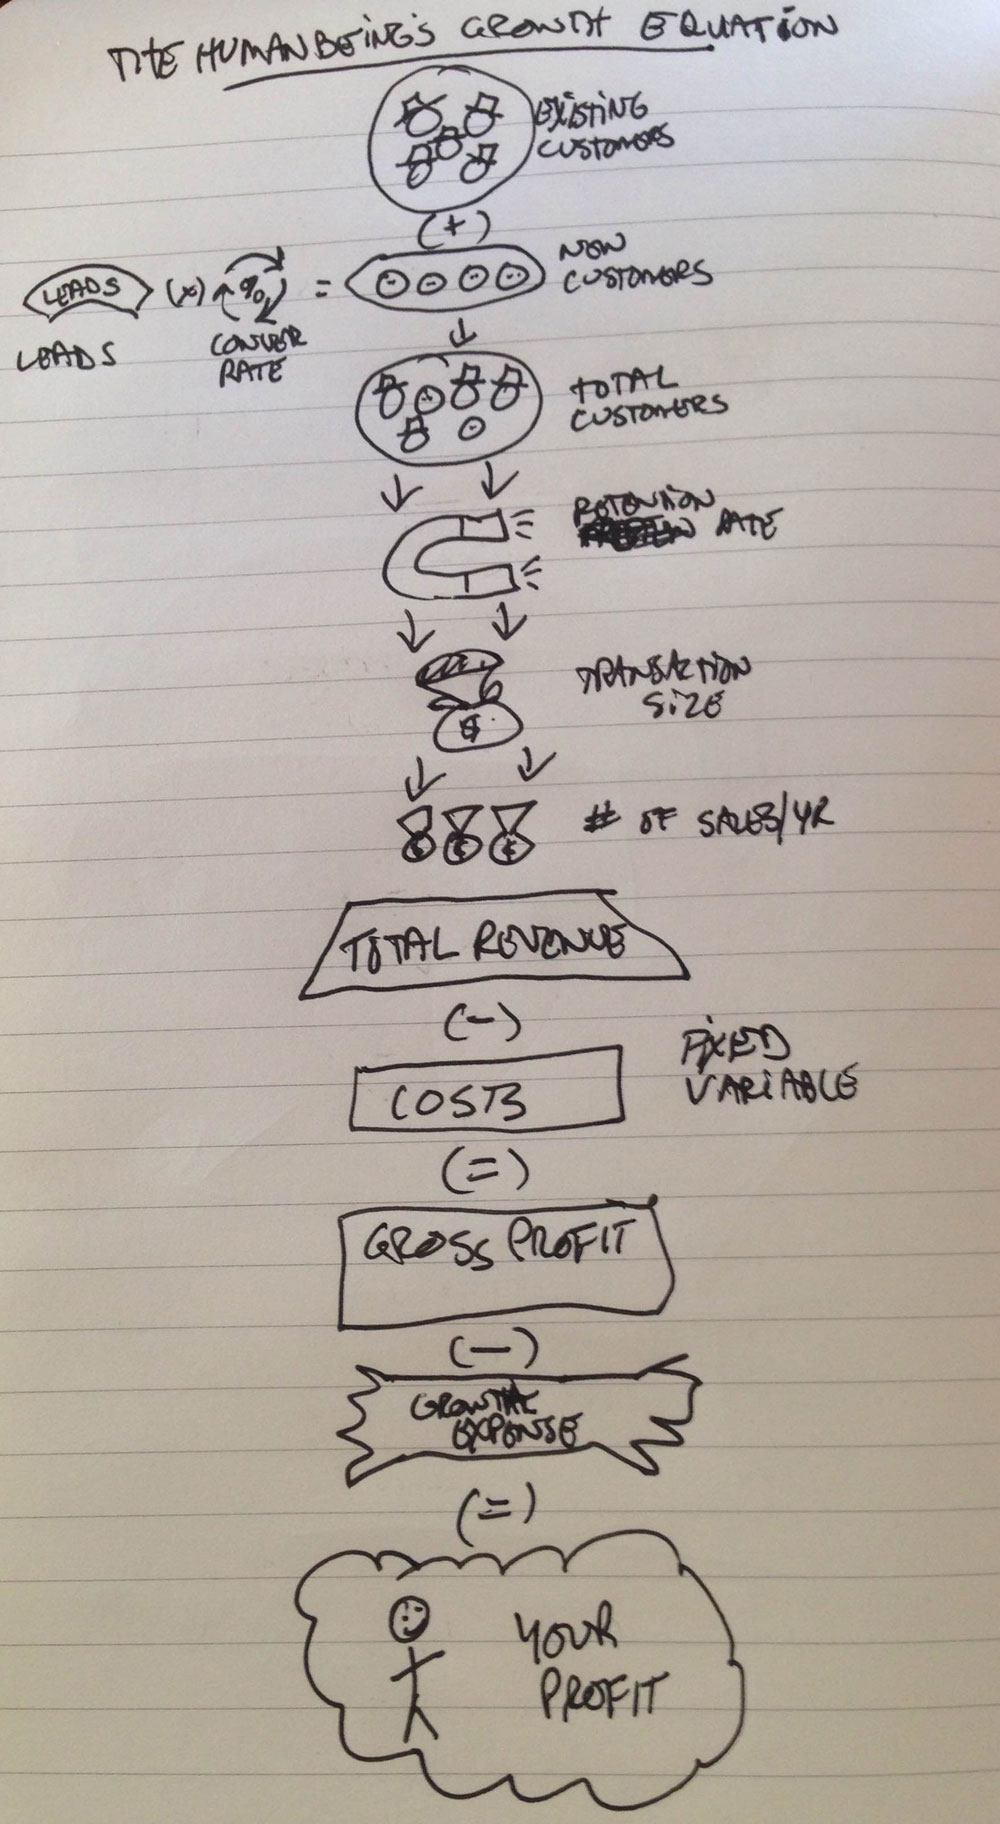 THE HUMAN BEING'S GROWTH EQUATION
EXISTING
CUSTOMERS
(+)
LEADS (x) % =
NEW
CUSTOMERS
LEADS
CONVER
RATE
TOTAL
CUSTOMERS
RETENTION
RATE
TRANSACTION
SIZE
$
# OF SALES/YR
TOTAL REVENUE
(-)
COSTS
FIXED
VARIABLE
(=)
GROSS PROFIT
(-)
GROWTH
EXPENSE
(=)
YOUR
PROFIT